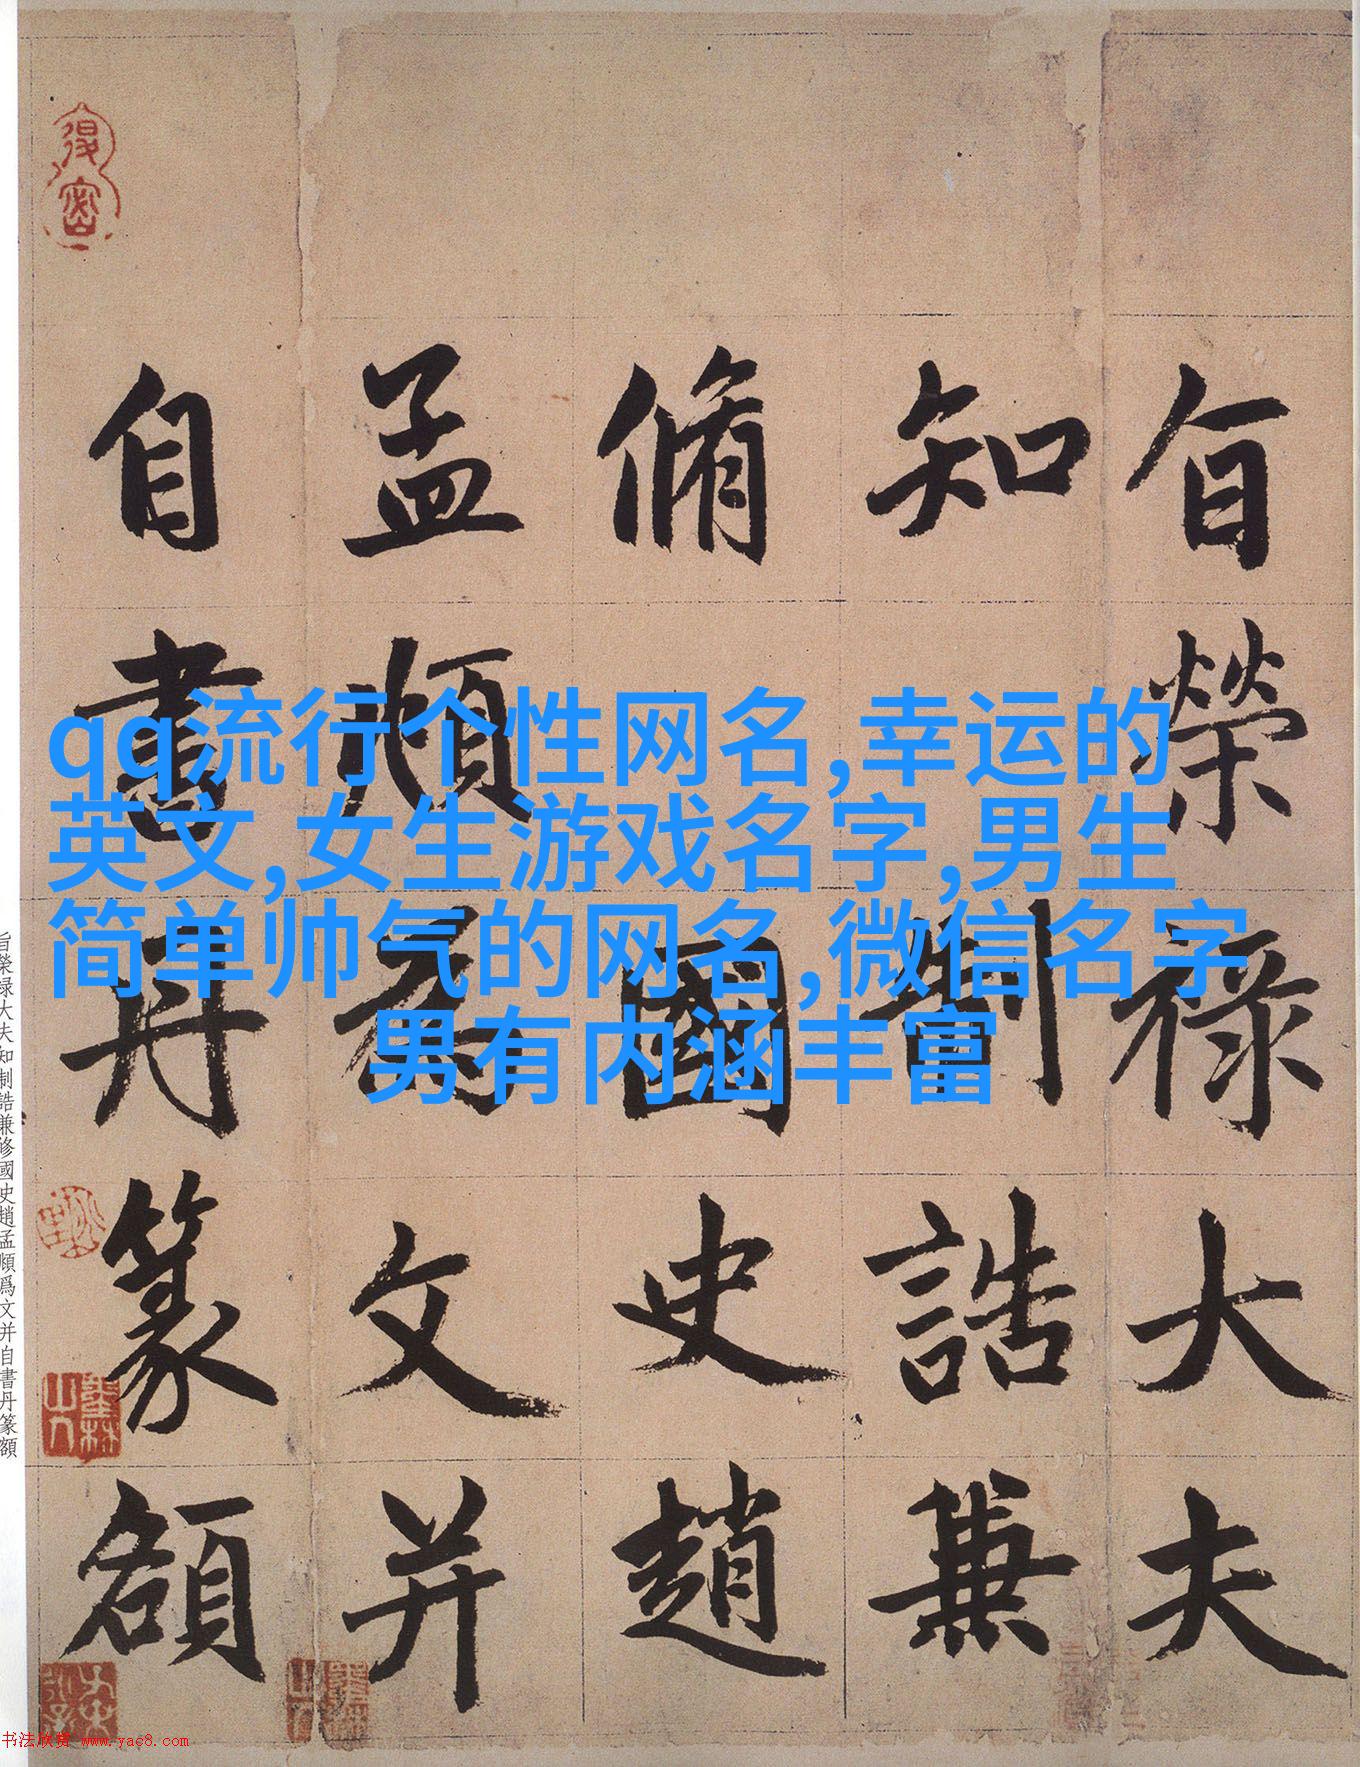 旨榮祿大夫
知制誥兼
脩國史趙
孟頫為文并
自書丹篆額
qq流行个性网名,幸运的
英文,女生游戏名字,男生
简单帅气的网名,微信名字
男有内涵丰富
旨榮禄大夫知制誥兼修國史趙孟頫爲文并自書丹篆額
书法欣赏 www.yac8.com